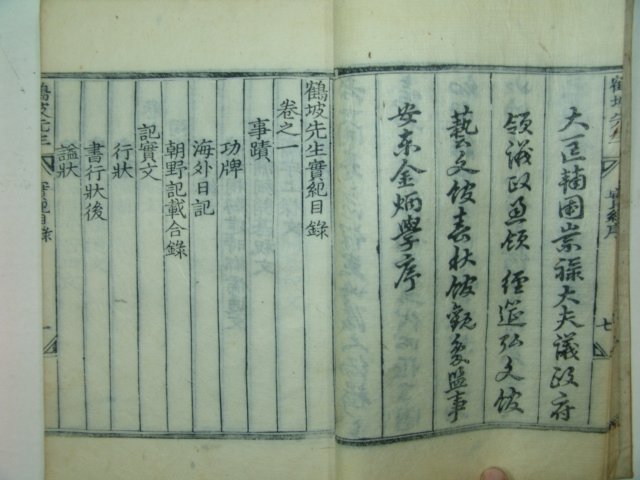 大匡輔國崇祿大夫議政府
領議政兼領 經筵弘文館
藝文館春秋館觀象監事
安東金炳學序
鶴坡先生實紀目錄
卷之一
事蹟
功牌
海外日記
朝野記載合錄
記實文
行狀
書行狀後
諡狀